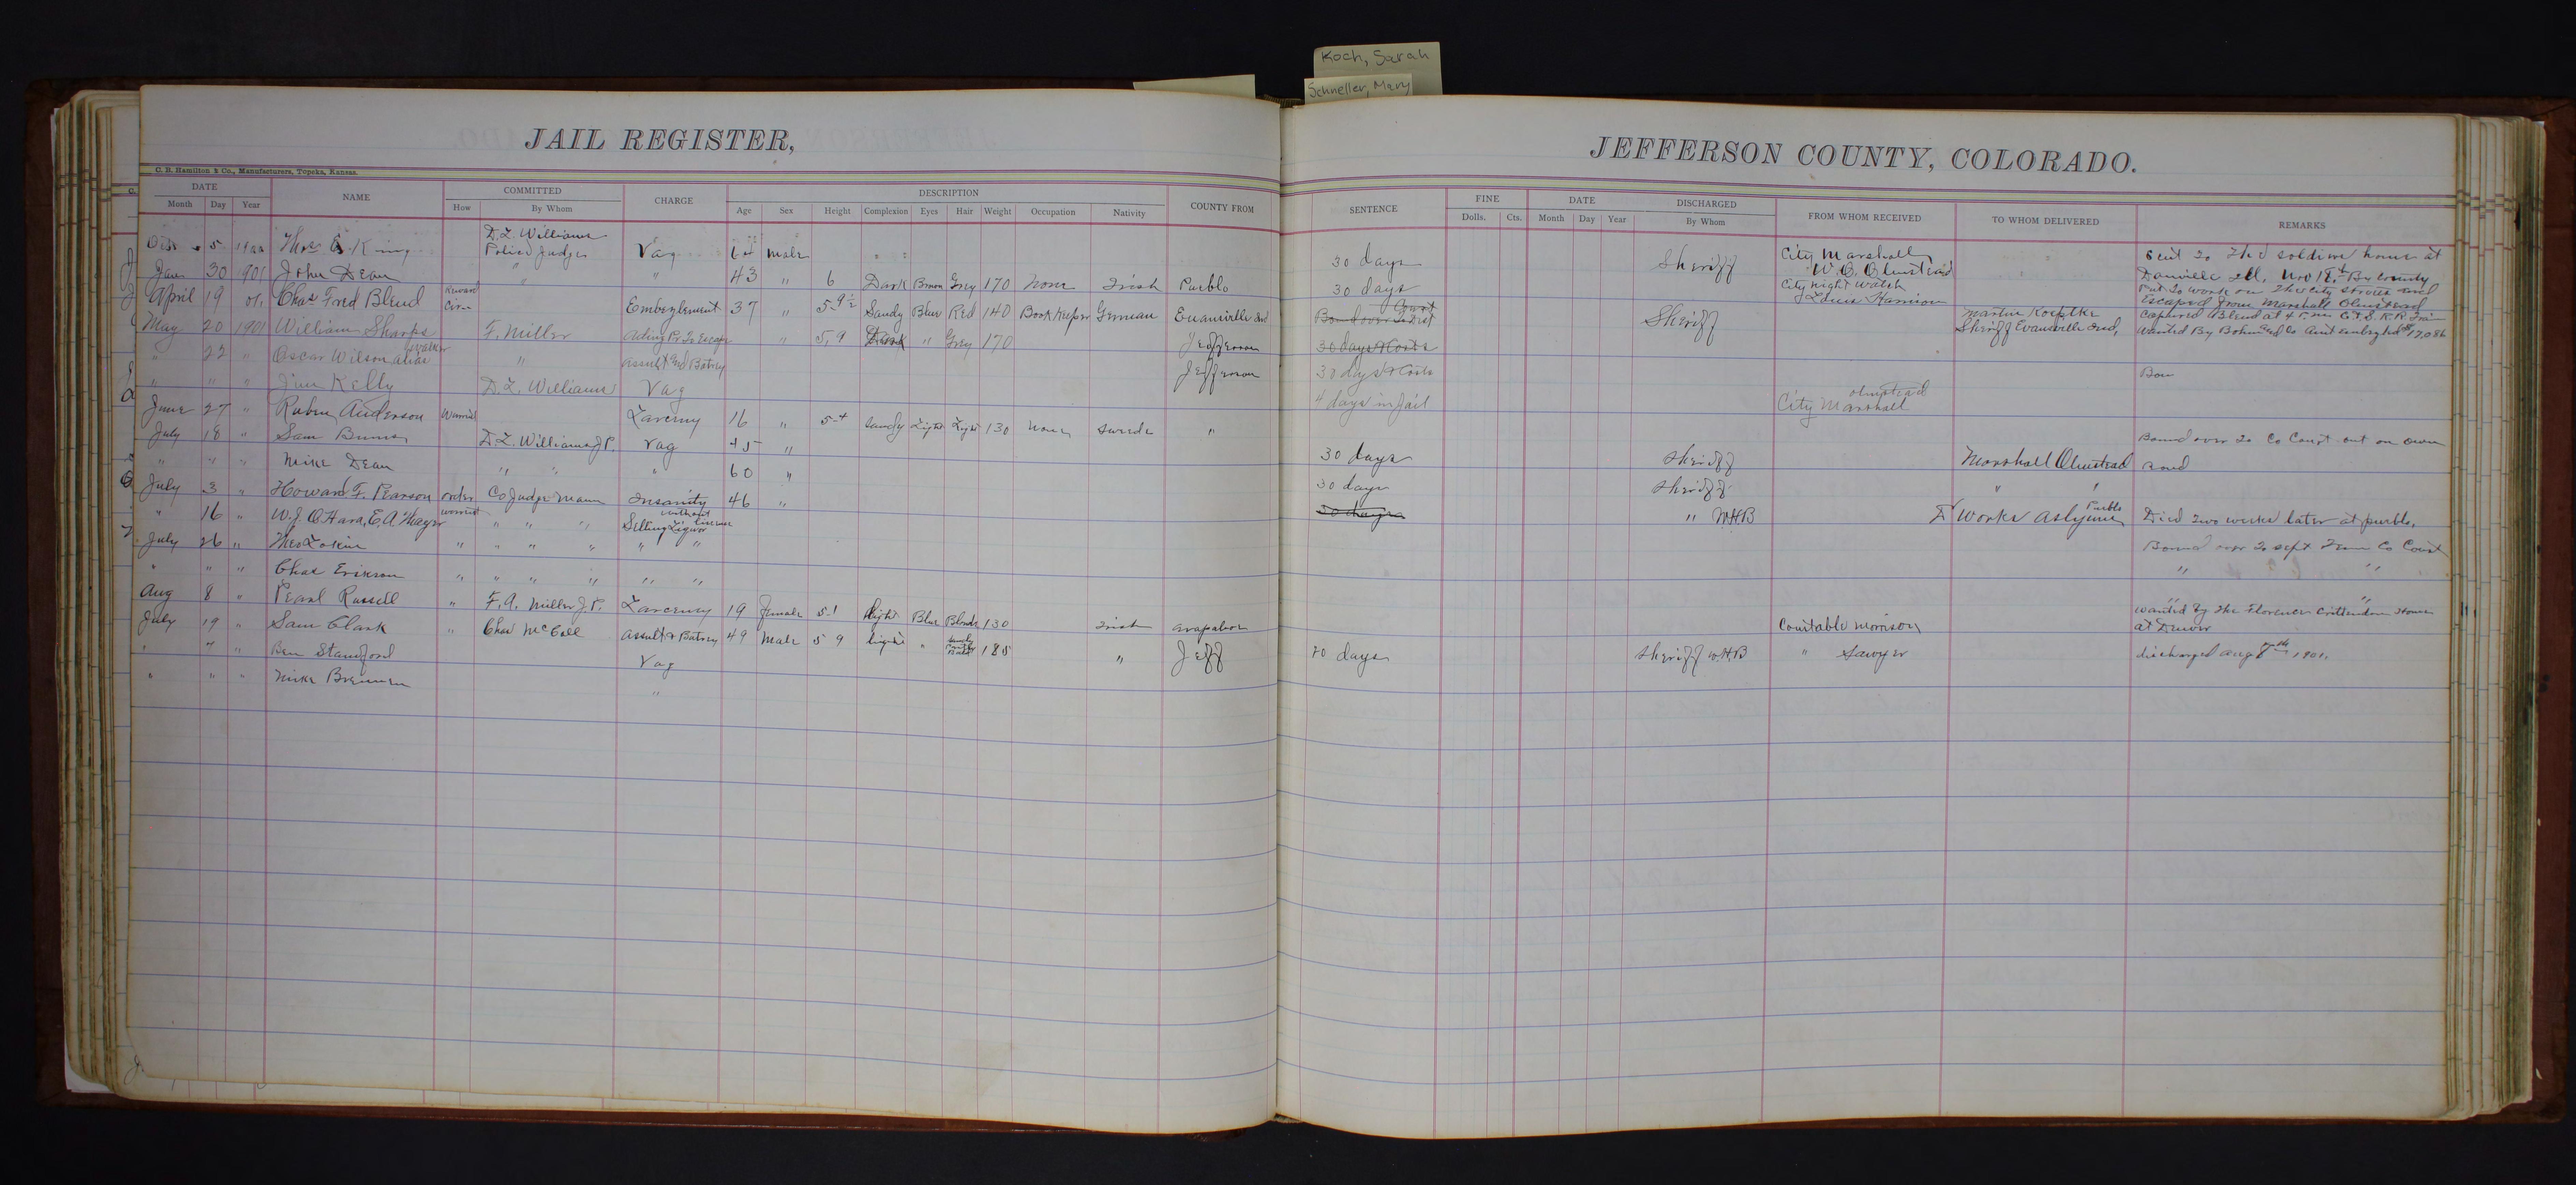 Koch, Sarah
Schneller, Mary
JAIL REGISTER,
JEFFERSON COUNTY, COLORADO.
C. B. Hamilton & Co., Manufacturers, Topeka, Kansas.
DATE NAME COMMITTED CHARGE DESCRIPTION COUNTY FROM
Month Day Year How By Whom Age Sex Height Complexion Eyes Hair Weight Occupation Nativity
SENTENCE FINE DATE DISCHARGED FROM WHOM RECEIVED TO WHOM DELIVERED REMARKS
Dolls. Cts. Month Day Year By Whom
5 King D. L. Williams Police Judge Vag male
Jan 30 1901 John Dean " " 43 " 6 Dark Brown Grey 170 None Irish Pueblo
April 19 01. Chas Fred Blend Reward Cir Embezlement 37 " 5-9½ Sandy Blue Red 140 Book Keeper German Evansville Ind
May 20 1901 William Sharps F. Miller Aiding Pr. To Escape " 5,9 Dark " Grey 170 Jefferson
" 22 " Oscar Wilson alias Walker " Assult And Batrey Jefferson
" " " Jim Kelly D. L. Williams Vag
June 27 " Ruben Anderson Warrant Larceny 16 " 5-4 Sandy Light Light 130 None Swede "
July 18 " Sam Burns D. L. Williams J. P. Vag 45 "
" " " Mike Dean " " " 60 "
July 3 " Howard F. Pearson order Co Judge Mann Insanity 46 "
" 16 " W. J. O Hara, E. A. Mayer warrant " " " Selling Liquor without license
July 26 " Theo " " " " " "
" " " Chas Erikson " " " " " "
Aug 8 " Pearl Russell " F. A. Miller J. P. Larceney 19 Female 5-1 Light Blue Blonde 130 Irish Arapahoe
July 19 " Sam Clark " Chas McCall Assult & Batrey 49 Male 5 9 light " Bald 185 " Jeff
" " " Ben Stanford Vag
" " " Mike Brennen "
30 days Sheriff City Marshall W. O. Olmstead Sent To The soldiers home at
Danville Ill, Nov 18th By County
30 days City Night Watch Louis Harrison Put to work on the city streets and
Escaped from Marshall Olmstead
Bound over To Dist Court Sheriff Martin Koepke Sheriff Evansville Ind, Captured Blend at 4 P. m. C. & S. R. R. Train
Wanted By Bohn Co Ant embezled $17,086
30 days & Costs
30 days & Costs Bon
4 days in Jail City Marshall Olmstead
Bound over to Co Court out on own
30 days Sheriff Marshall Olmstead
30 days Sheriff " "
30 days " W.H.B Works Aslyum Pueblo Died two weeks later at pueblo.
Bound over to sept Term Co Court
" "
" "
Constable Morrison wanted By the Florence Crittendon Home
at Denver
Sheriff W.H.B " Sawyer discharged Aug 8th 1901.